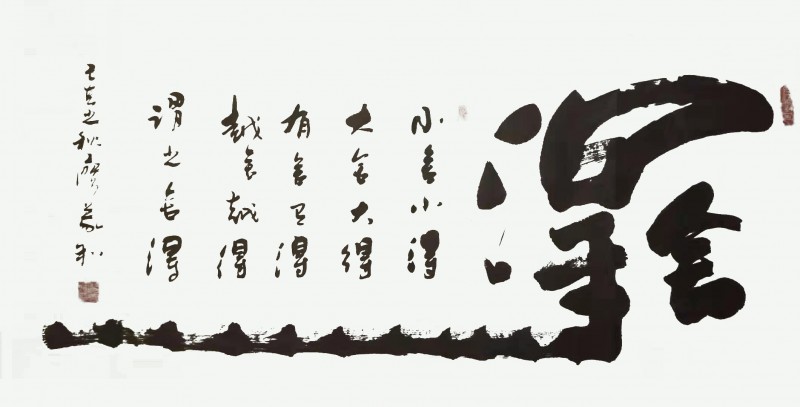 舍得
小舍小得
大舍大得
有舍有得
越舍越得
谓之舍得
之秋